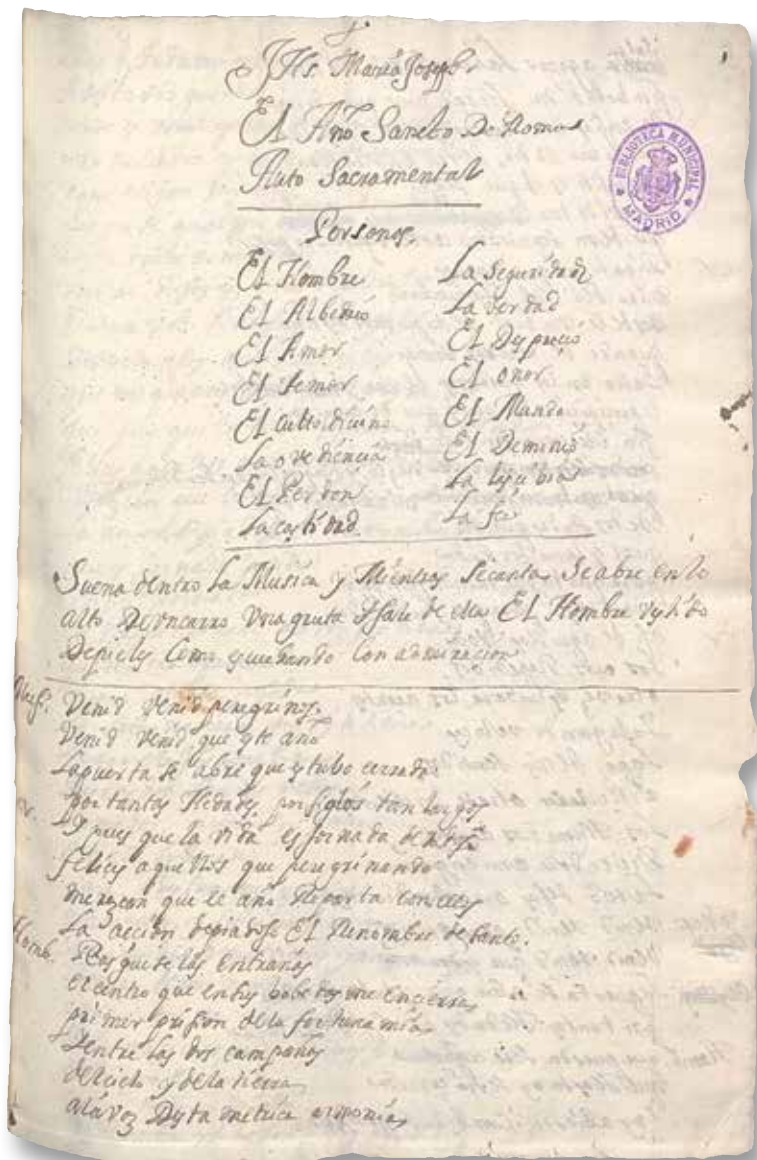 JHs. María Joseph.
El Año Sancto De Roma
Auto Sacramental
BIBLIOTECA MUNICIPAL
MADRID
Personas.
El Hombre
El Albedrio
El Amor
El temor
El culto divino
La ovediencia
El Perdon
La castidad
La seguridad
La verdad
El Desprecio
El onor
El Mundo
El Demonio
La lascibia
La fee
Suena dentro La Musica y Mientras secanta, Seabre enlo
alto Deuncarro Una gruta Ysale de ella El Hombre vestido
Depieles Como escuchando Con admiracion
Musi. Venid venid peregrinos.
Venid venid que este año
Lapuerta se abre que estubo cerrada
por tantas Hedades, por siglos tan largos
Y pues que la vida es jornada de
felices aquellos que peregrinando
merezcan que le año Reparta con ellos
La accion depiadoso El Renombre de santo.
Homb. Rasguese las entrañas
el centro que en sus bobedas me encierra,
primer prision dela fortuna mia,
Yentre las dos campañas
del cielo y dela tierra
ala voz Desta metrica armonia,